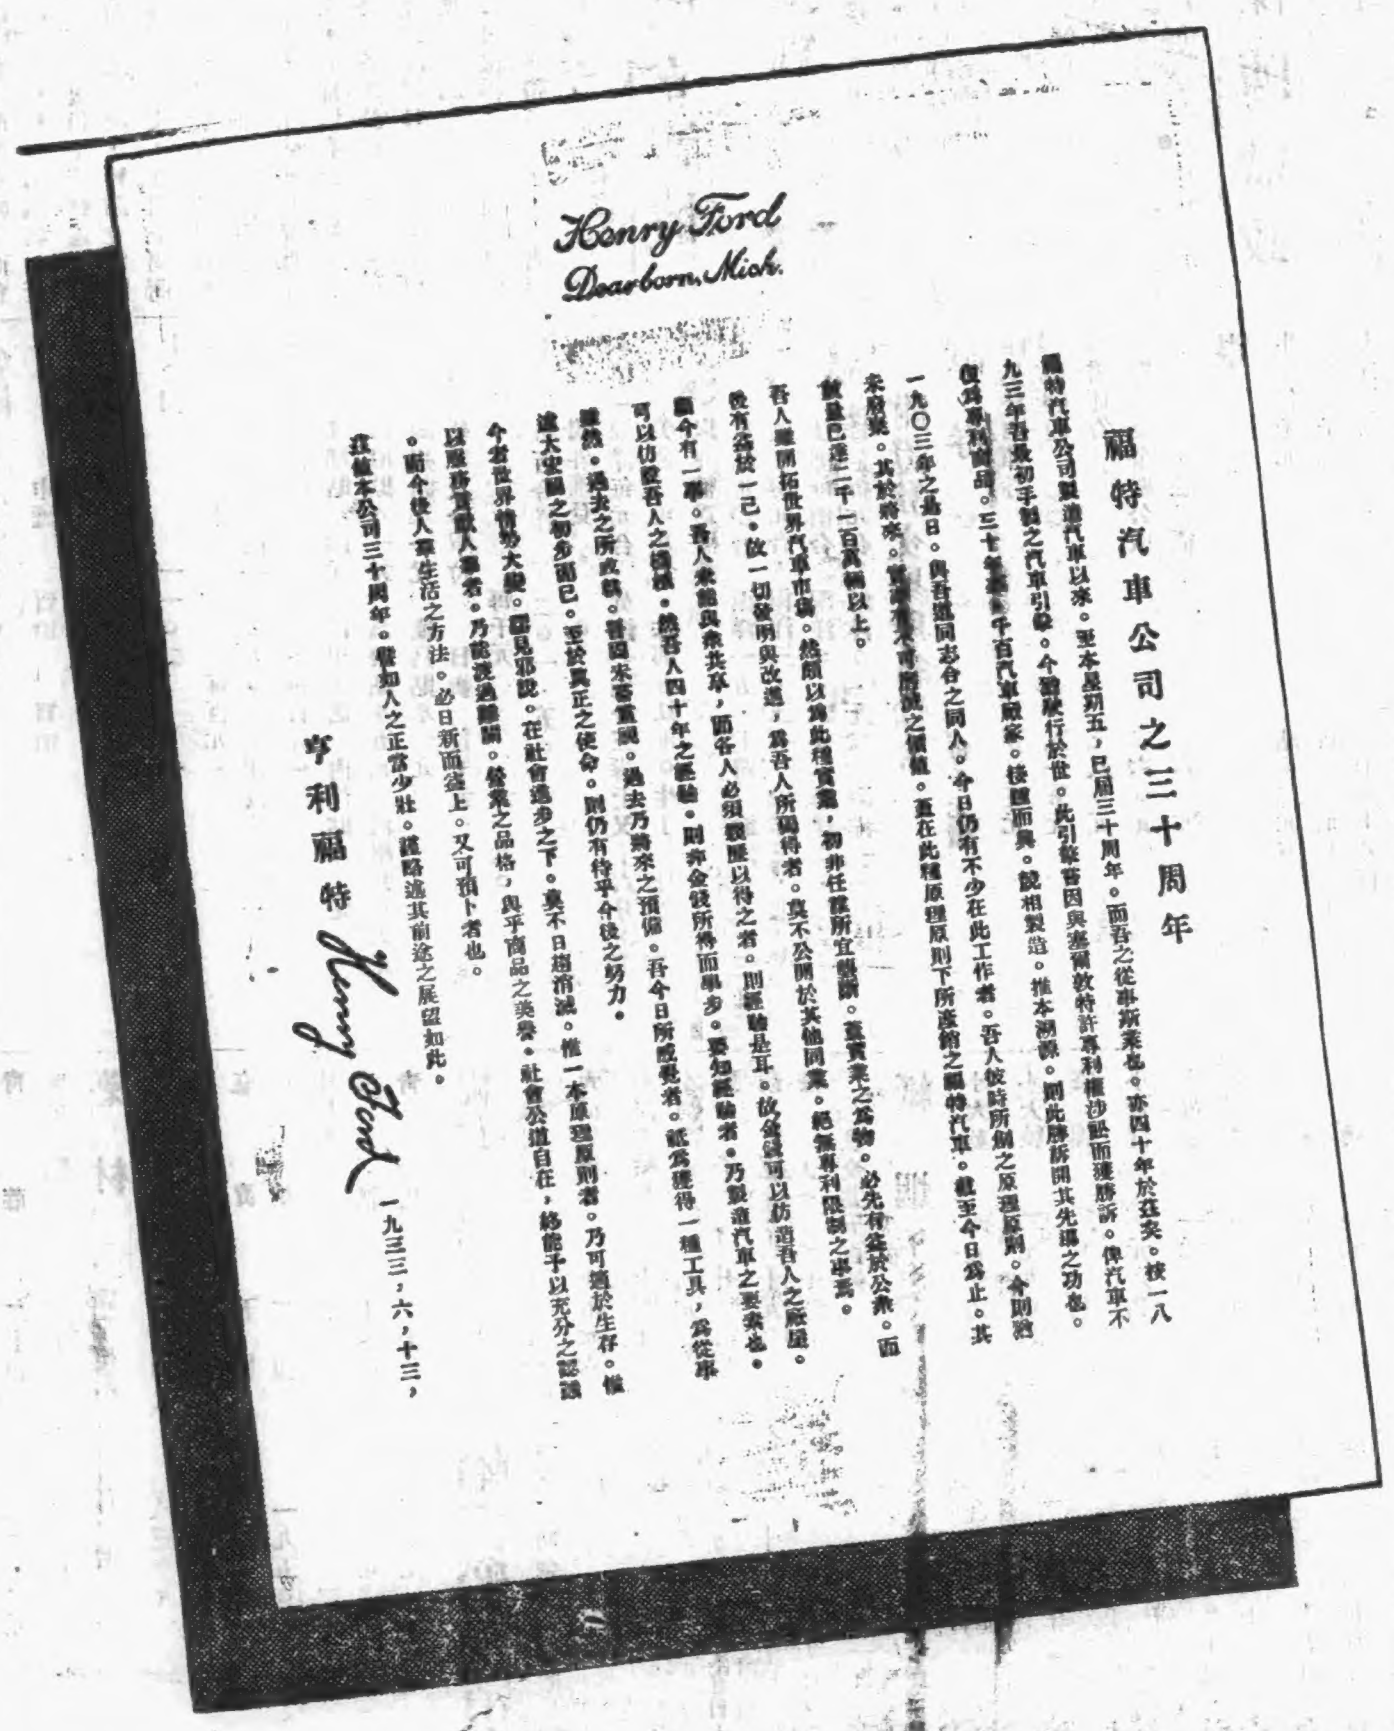 Henry Ford
Dearborn, Mich.
福特汽車公司之三十周年
福特汽車公司製造汽車以來。至本星期五，已屆三十周年。而吾之從事斯業也。亦四十年於茲矣。按一八
九三年吾最初手製之汽車引擎。今猶駛行於世。此引擎嘗因與塞爾敦特許專利權涉訟而獲勝訴。俾汽車不
復爲專利商品。三十年來。千百汽車廠家。接踵而興。競相製造。推本溯源。則此勝訴開其先導之功也。
一九〇三年之是日。與吾道同志合之同人。今日仍有不少在此工作者。吾人彼時所創之原理原則。今則猶
未廢棄。其於將來。實有不可磨滅之價値。蓋在此種原理原則下所產銷之福特汽車。截至今日爲止。其
數量已達二千一百萬輛以上。
吾人雖開拓世界汽車市場。然頗以爲此種實業，初非任獲所宜壟斷。蓋實業之爲物。必先有益於公衆。而
後有益於一己。故一切發明與改進，爲吾人所獨得者。莫不公開於其他同業。絕無專利限制之事焉。
顧今有一事。吾人未能與衆共享，而各人必須親歷以得之者。則經驗是耳。故金錢可以仿造吾人之廠屋。
可以仿造吾人之機械。然吾人四十年之經驗。則非金錢所得而學步。要知經驗者。乃製造汽車之要素也。
雖然。過去之所成就。吾固未嘗重視。過去乃將來之預備。吾今日所感覺者。祇爲獲得一種工具，爲從事
遠大宏圖之初步而已。至於眞正之使命。則仍有待乎今後之努力。
今者世界情勢大變。謬見邪說。在社會進步之下。莫不日趨消滅。惟一本原理原則者。乃可適於生存。惟
以服務貢獻人羣者。乃能渡過難關。營業之品格，與乎商品之美譽。社會公道自在，終能予以充分之認識
。瞻今後人羣生活之方法。必日新而益上。又可預卜者也。
茲値本公司三十周年。譬如人之正當少壯。謹略述其前途之展望如此。
亨利福特 Henry Ford 一九三三，六，十三，